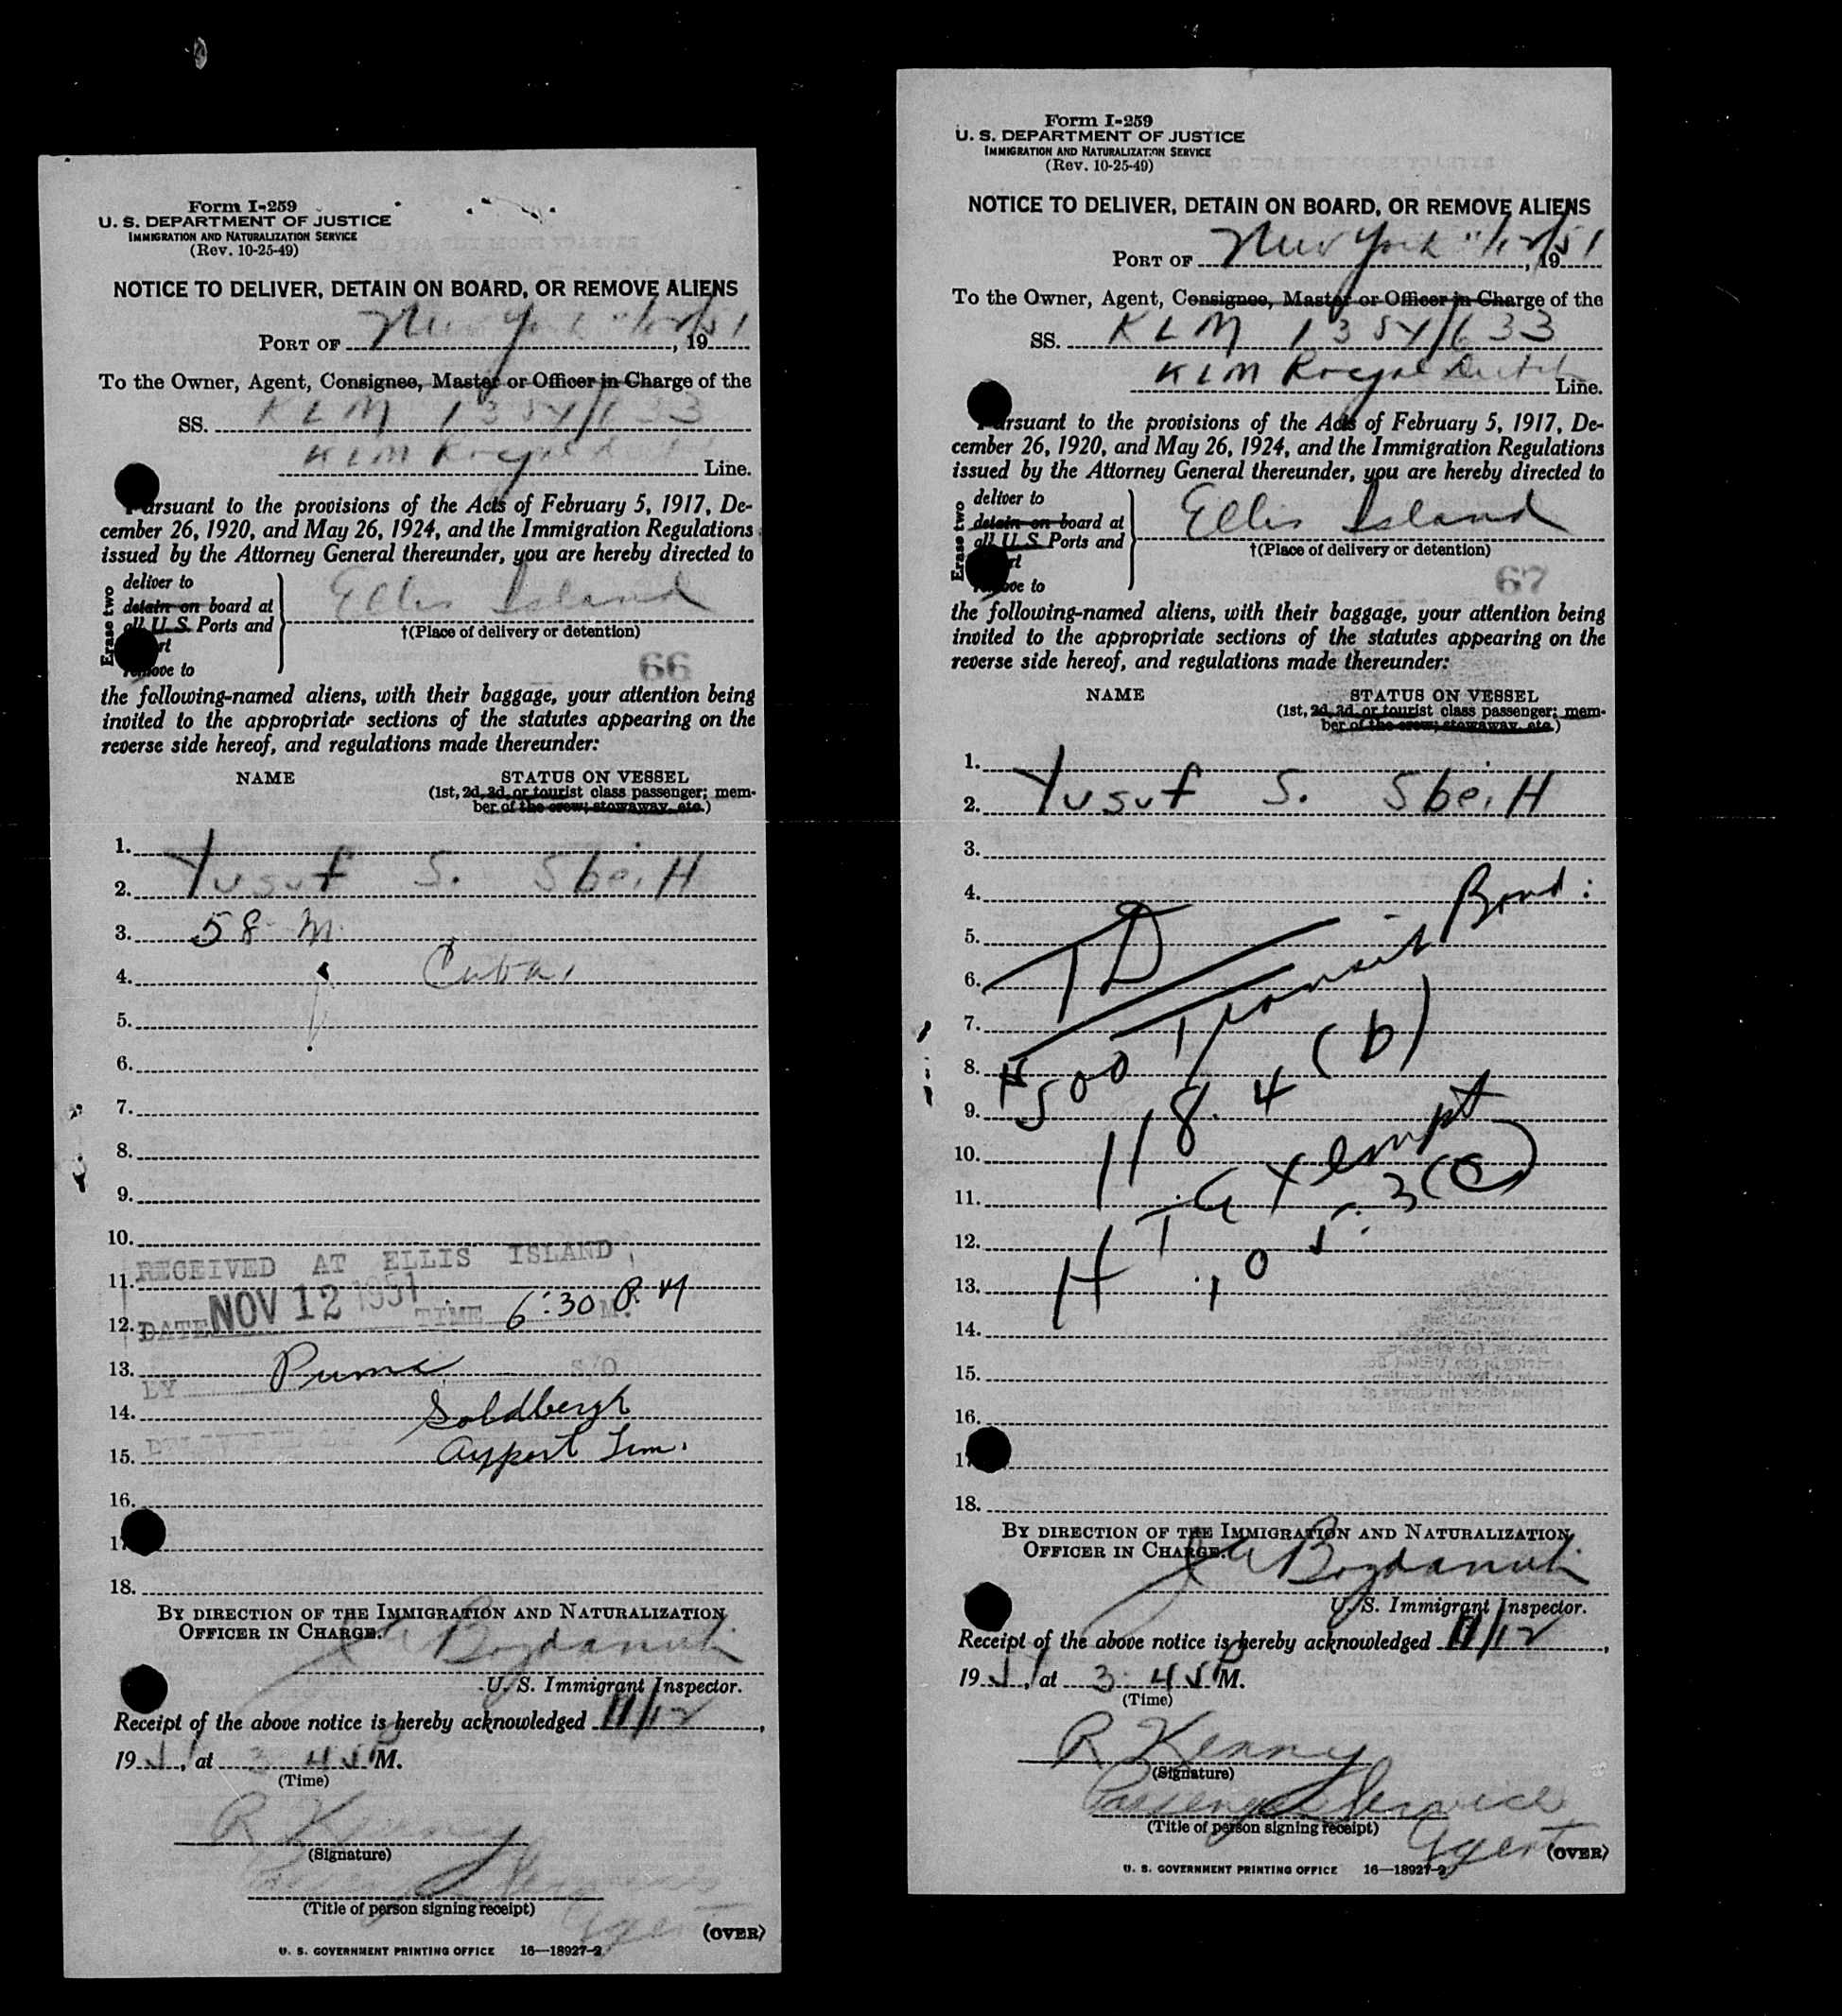 Form I-259
U. S. DEPARTMENT OF JUSTICE
IMMIGRATION AND NATURALIZATION SERVICE
(Rev. 10-25-49)
NOTICE TO DELIVER, DETAIN ON BOARD, OR REMOVE ALIENS
PORT OF New York 11/12/51, 19
To the Owner, Agent, Consignee, Master or Officer in Charge of the
SS. KLM 1354/633
KLM Royal Line.
Pursuant to the provisions of the Acts of February 5, 1917, De-
cember 26, 1920, and May 26, 1924, and the Immigration Regulations
issued by the Attorney General thereunder, you are hereby directed to
Erase two
deliver to
detain on board at
all U. S. Ports and
remove to
Ellis Island
†(Place of delivery or detention)
66
the following-named aliens, with their baggage, your attention being
invited to the appropriate sections of the statutes appearing on the
reverse side hereof, and regulations made thereunder:
NAME STATUS ON VESSEL
(1st, 2d, 3d, or tourist class passenger; mem-
ber of the crew; stowaway, etc.)
1.
2. Yusuf S. SbeiH
3. 58 M.
4. Cuba
5.
6.
7.
8.
9.
10.
RECEIVED AT ELLIS ISLAND,
11.
12. DATE NOV 12 1951 TIME 6:30 P.M M.
13. BY S/O
14.
15.
16.
17.
18.
BY DIRECTION OF THE IMMIGRATION AND NATURALIZATION
OFFICER IN CHARGE.
U. S. Immigrant Inspector.
Receipt of the above notice is hereby acknowledged 11/12,
1951, at 3 45 PM.
(Time)
R Kenny
(Signature)
Passenger Service
Agent
(Title of person signing receipt)
(OVER)
U. S. GOVERNMENT PRINTING OFFICE 16—18927-2
Form I-259
U. S. DEPARTMENT OF JUSTICE
IMMIGRATION AND NATURALIZATION SERVICE
(Rev. 10-25-49)
NOTICE TO DELIVER, DETAIN ON BOARD, OR REMOVE ALIENS
PORT OF New York 11/12/51, 19
To the Owner, Agent, Consignee, Master or Officer in Charge of the
SS. KLM 1354/633
KLM Royal Dutch Line.
Pursuant to the provisions of the Acts of February 5, 1917, De-
cember 26, 1920, and May 26, 1924, and the Immigration Regulations
issued by the Attorney General thereunder, you are hereby directed to
Erase two
deliver to
detain on board at
all U. S. Ports and
remove to
Ellis Island
†(Place of delivery or detention)
67
the following-named aliens, with their baggage, your attention being
invited to the appropriate sections of the statutes appearing on the
reverse side hereof, and regulations made thereunder:
NAME STATUS ON VESSEL
(1st, 2d, 3d, or tourist class passenger; mem-
ber of the crew; stowaway, etc.)
1.
2. Yusuf S. SbeiH
3.
4.
5. TD
6.
7.
8. $500 Transit Bond:
9. 118.4(b)
10.
11. H.T. Exempt
12. 105.3(c)
13.
14.
15.
16.
17.
18.
BY DIRECTION OF THE IMMIGRATION AND NATURALIZATION
OFFICER IN CHARGE.
U. S. Immigrant Inspector.
Receipt of the above notice is hereby acknowledged 11/12,
1951, at 3:45 PM.
(Time)
R Kenny
(Signature)
Passenger Service
Agent
(Title of person signing receipt)
(OVER)
U. S. GOVERNMENT PRINTING OFFICE 16—18927-2